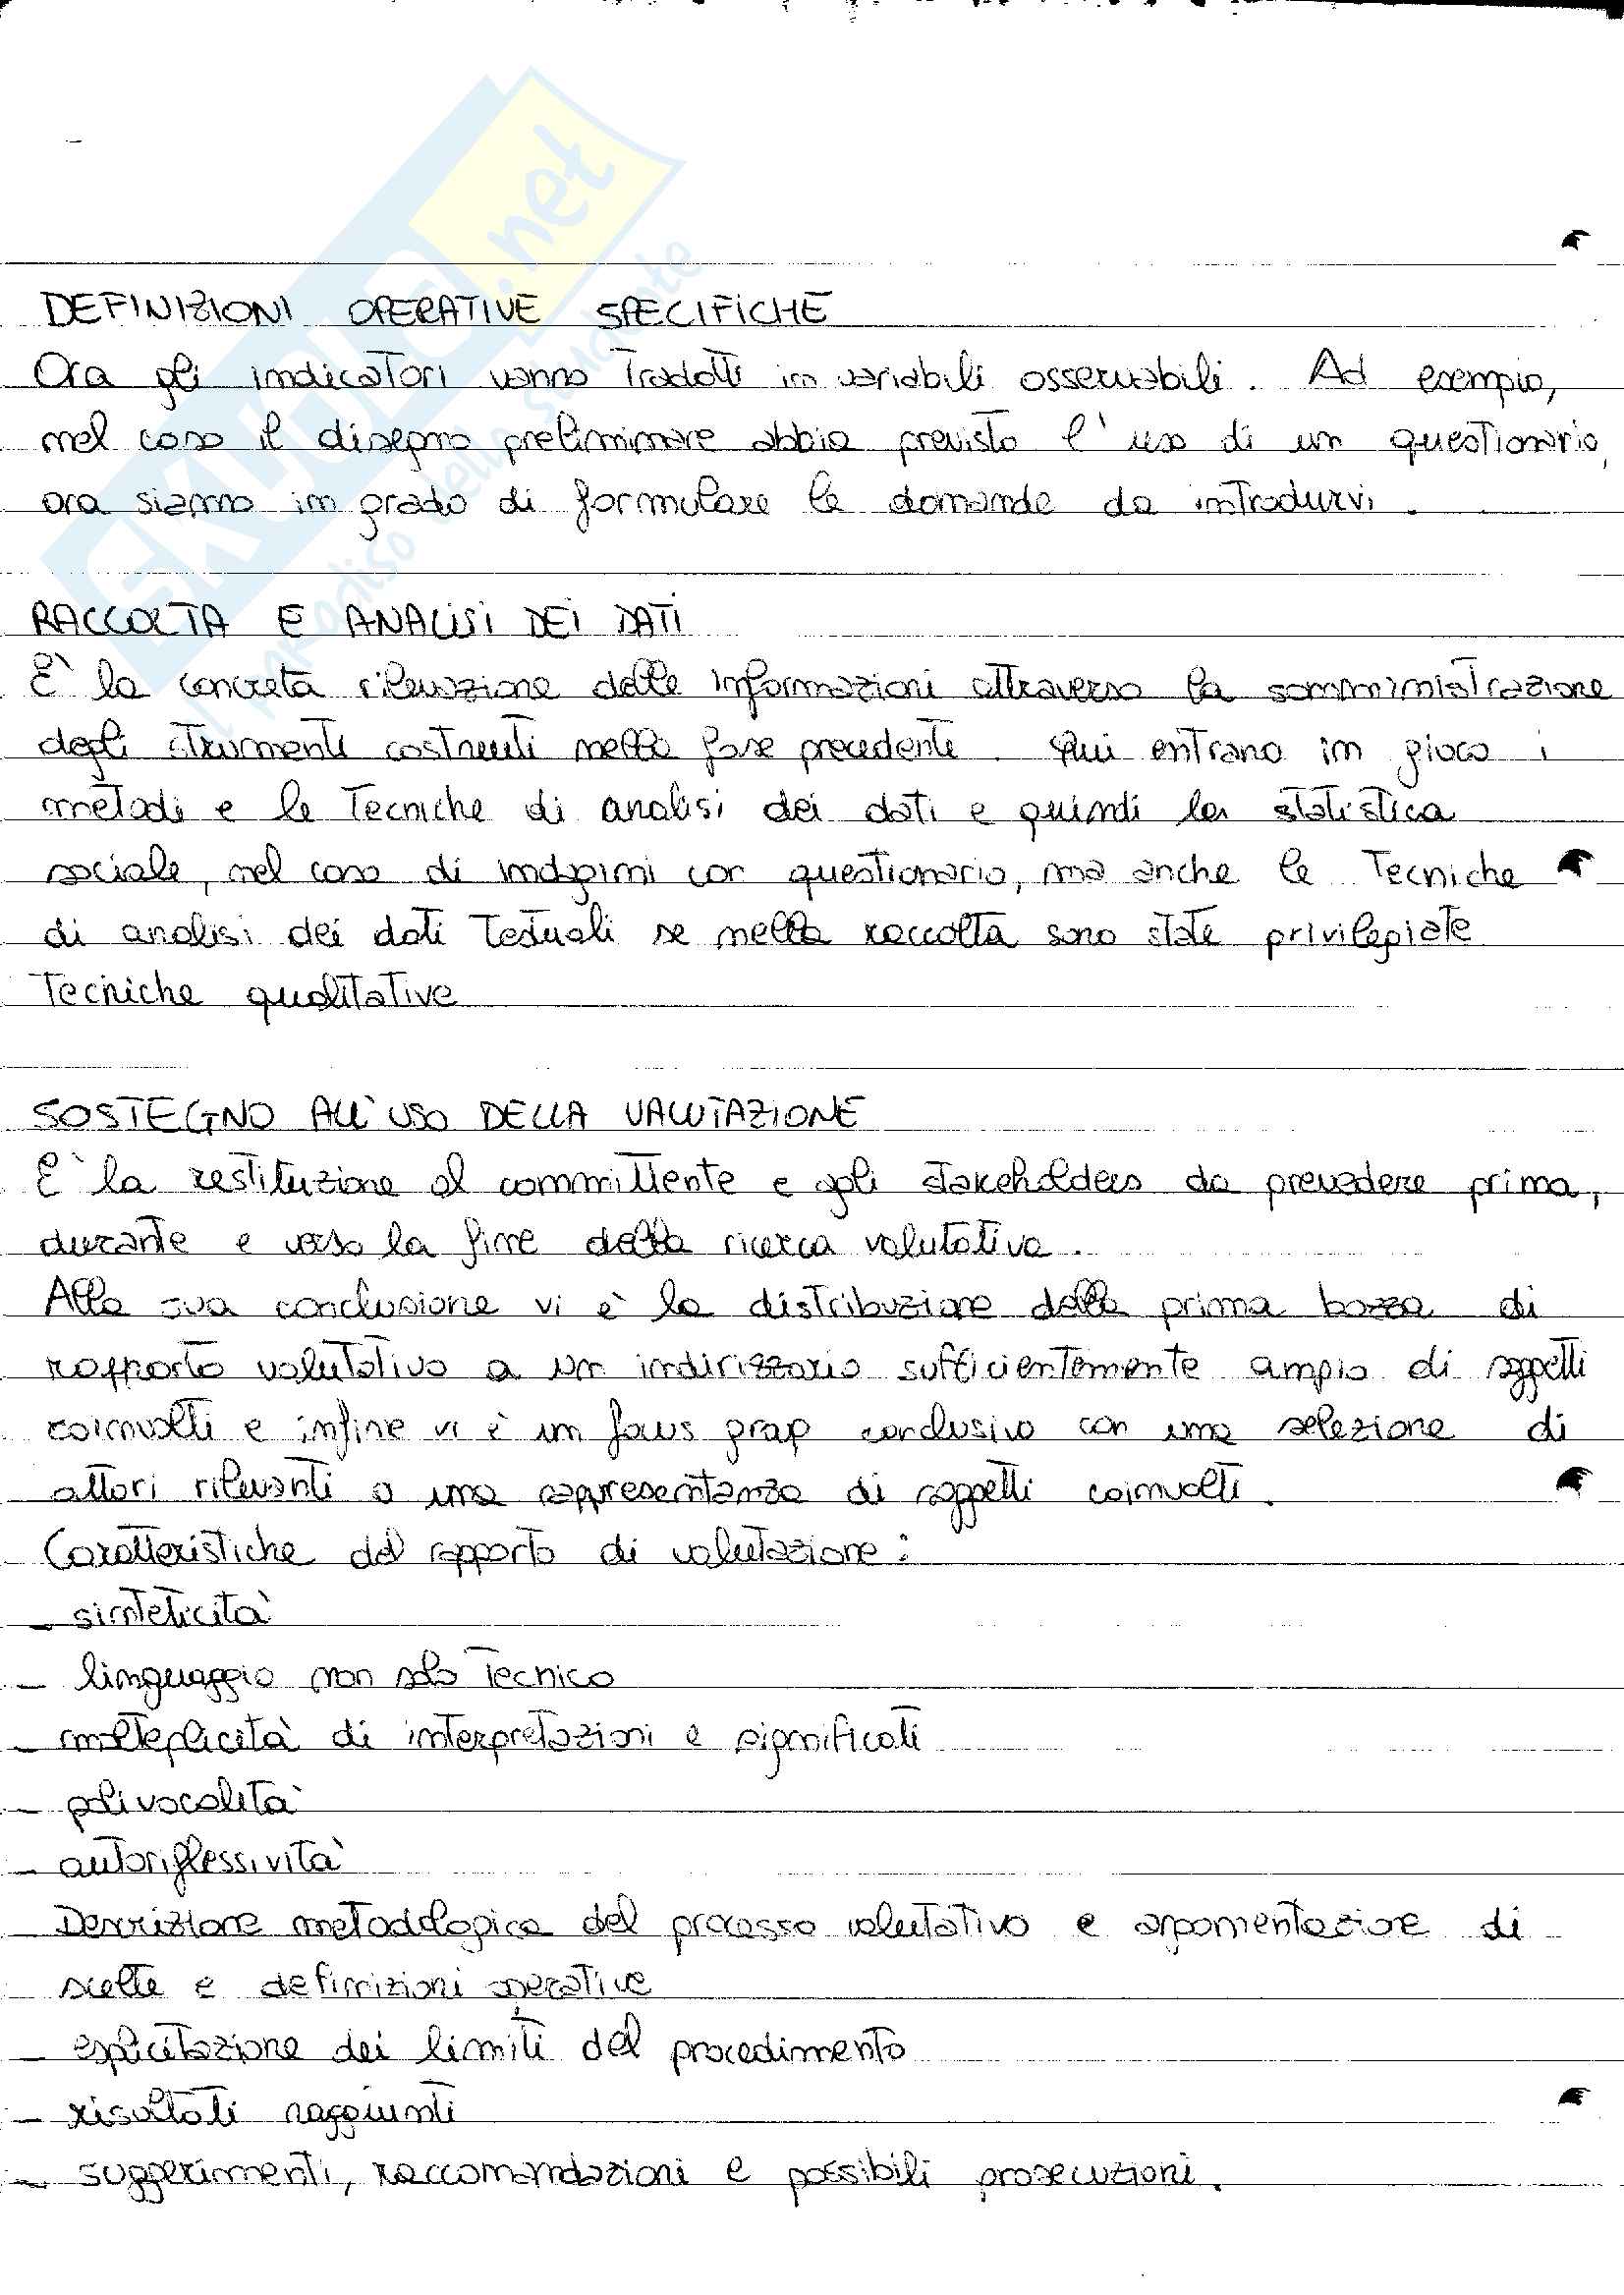 SKUOLA.net
il paradiso dello studente
DEFINIZIONI OPERATIVE SPECIFICHE
Ora gli indicatori vanno tradotti in variabili osservabili. Ad esempio,
nel caso il disegno preliminare abbia previsto l'uso di un questionario,
ora siamo in grado di formulare le domande da introdurvi.
RACCOLTA E ANALISI DEI DATI
È la concreta rilevazione delle informazioni attraverso la somministrazione
degli strumenti costruiti nella fase precedente. Qui entrano in gioco i
metodi e le tecniche di analisi dei dati e quindi la statistica
sociale, nel caso di indagini con questionario, ma anche le tecniche
di analisi dei dati testuali se nella raccolta sono state privilegiate
tecniche qualitative
SOSTEGNO ALL'USO DELLA VALUTAZIONE
È la restituzione al committente e agli stakeholders da prevedere prima,
durante e verso la fine della ricerca valutativa.
Alla sua conclusione vi è la distribuzione della prima bozza di
rapporto valutativo a un indirizzario sufficientemente ampio di soggetti
coinvolti e infine vi è un focus group conclusivo con una selezione di
attori rilevanti o una rappresentanza di soggetti coinvolti.
Caratteristiche del rapporto di valutazione:
- sinteticità
- linguaggio non solo tecnico
- molteplicità di interpretazioni e significati
- polivocalità
- autoriflessività
- Descrizione metodologica del processo valutativo e argomentazione di
scelte e definizioni operative
- esplicitazione dei limiti del procedimento
- risultati raggiunti
- suggerimenti, raccomandazioni e possibili prosecuzioni.